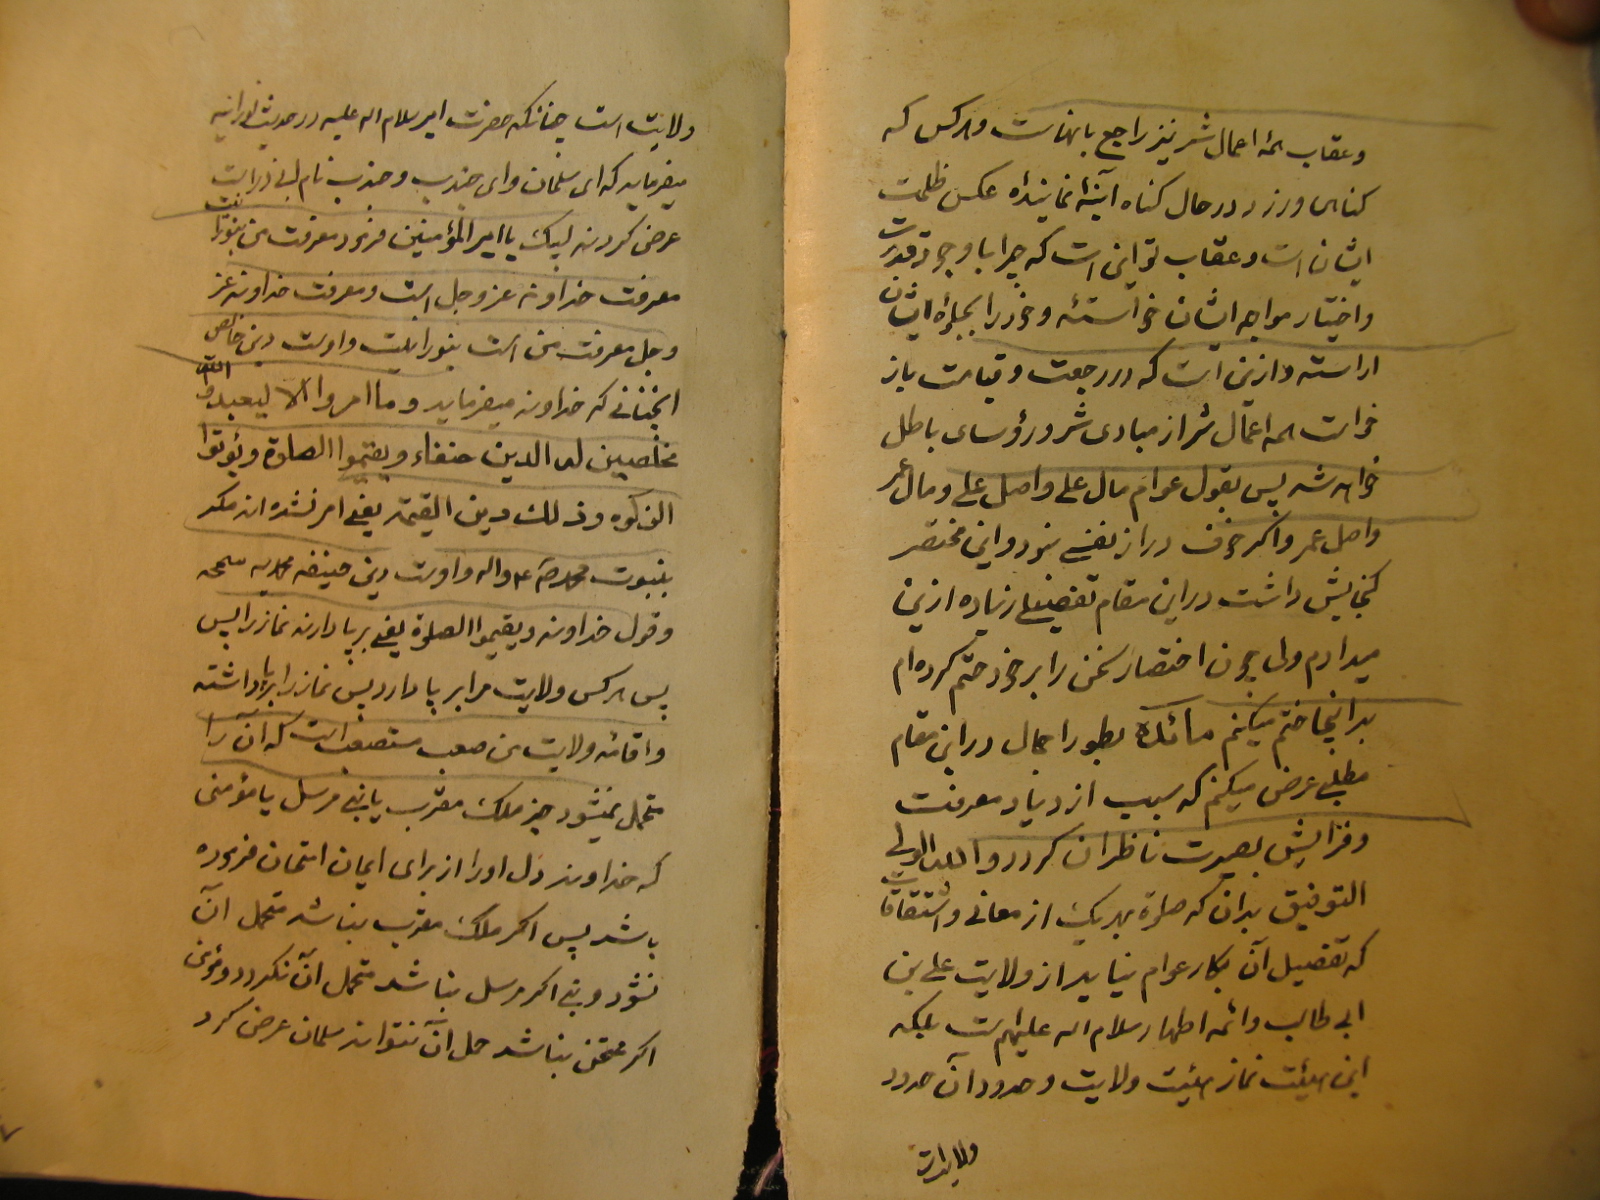 و عقاب همهٔ اعمال شر نیز راجع بانهاست و هرکس که
کناهی ورزد در حال کناه آینهٔ نمایندهٔ عکس ظلمت
ایشان است و عقاب تو این است که چرا با وجود قدرت
و اختیار مواجه ایشان خواستهٔ و خود را بجلوهٔ ایشان
اراستهٔ و ازین است که در رجعت و قیامت باز
خواست همه اعمال شر از مبادی شر و رؤسای باطل
خواهد شد پس بقول عوام مال علی و اصل علی و مال عمر
و اصل عمر و اکر خوف دراز نفسی نبود و این مختصر
کنجایش داشت در این مقام تفصیلی زیاده ازین
میدادم ولی چون اختصار سخن را بر خود حتم کرده‌ام
بدانیجا ختم میکنم بطور اجمال در این مقام
مطلبی عرض میکنم که سبب ازدیاد معرفت
و فزایش بصیرت ناظران کردد و الله الولی
التوفیق بدان که صلوة بهر یک از معانی و اشتقاقات
که تفصیل آن بکار عوام نیاید از ولایت علی بن
ابی طالب و ائمه اطهار سلام اله علیهم است بلکه
این هیئت نماز هیئت ولایت و حدود آن حدود
ولایت است
ولایت است چنانکه حضرت امیر سلام اله علیه در حدیث نورانیه
میفرماید که ای سلمان و ای جندب و جندب نام ابی ذر است
عرض کردند لبیک یا امیر المؤمنین فرمود معرفت من بنورانیت
معرفت خداوند عز و جل است و معرفت خداوند عز
و جل معرفت من است بنورانیت و اوست دین خالص
انچنانی که خداوند میفرماید و ما امروا الا لیعبدوا الله
مخلصین له الدین حنفاء و یقیموا الصلوة و یؤتوا
الزکوة و ذلک دین القیمة یعنی امر نشده اند مکر
بنبوت محمد ص ع و اله و اوست دین حنیفه محمدیه سمحه
و قول خداوند و یقیموا الصلوة یعنی برپا دارند نماز را پس
پس هر کس ولایت مرا برپا دارد پس نماز را برپا داشته
و اقامه ولایت من صعب مستصعب است که آن را
متحمل نمیشود جز ملک مقرب یا نبی مرسل یا مؤمنی
که خداوند دل او را از برای ایمان امتحان فرموده
باشد پس اکر ملک مقرب نباشد متحمل آن
نشود و نبی اکر مرسل نباشد متحمل آن نکردد و مؤمن
اکر ممتحن نباشد حمل آن نتواند سلمان عرض کرد